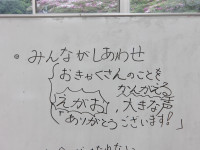 • みんながしあわせ
おきゃくさんのことを
かんがえる
えがお、大きな声
ありがとうございます!」